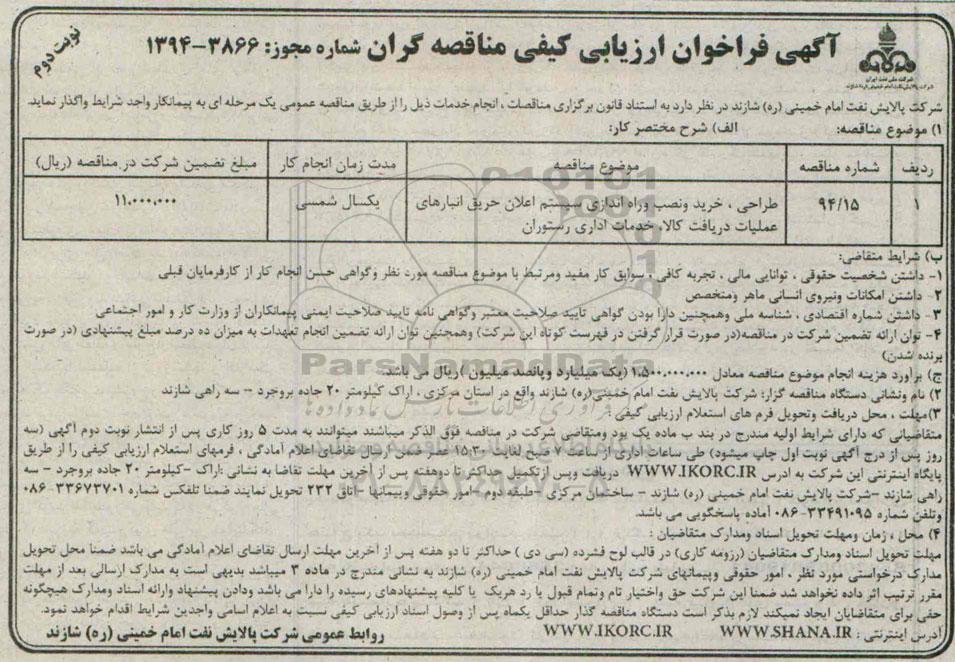 نوبت دوم
آگهی فراخوان ارزیابی کیفی مناقصه گران شماره مجوز: ۳۸۶۶-۱۳۹۴
شرکت ملی نفت ایران
شرکت پالایش نفت امام خمینی (ره) شازند
شرکت پالایش نفت امام خمینی (ره) شازند در نظر دارد به استناد قانون برگزاری مناقصات ، انجام خدمات ذیل را از طریق مناقصه عمومی یک مرحله ای به پیمانکار واجد شرایط واگذار نماید.
۱) موضوع مناقصه: الف) شرح مختصر کار:
ردیف شماره مناقصه موضوع مناقصه مدت زمان انجام کار مبلغ تضمین شرکت در مناقصه (ریال)
۱ ۹۴/۱۵ طراحی ، خرید ونصب وراه اندازی سیستم اعلان حریق انبارهای یکسال شمسی ۱۱،۰۰۰،۰۰۰
عملیات دریافت کالا، خدمات اداری رستوران
ب) شرایط متقاضی:
۱- داشتن شخصیت حقوقی ، توانایی مالی ، تجربه کافی ، سوابق کار مفید ومرتبط با موضوع مناقصه مورد نظر وگواهی حسن انجام کار از کارفرمایان قبلی
۲- داشتن امکانات ونیروی انسانی ماهر ومتخصص
۳- داشتن شماره اقتصادی ، شناسه ملی وهمچنین دارا بودن گواهی تایید صلاحیت معتبر وگواهی نامه تایید صلاحیت ایمنی پیمانکاران از وزارت کار و امور اجتماعی
۴- توان ارائه تضمین شرکت در مناقصه(در صورت قرار گرفتن در فهرست کوتاه این شرکت) وهمچنین توان ارائه تضمین انجام تعهدات به میزان ده درصد مبلغ پیشنهادی (در صورت
برنده شدن)
ج) برآورد هزینه انجام موضوع مناقصه معادل ۱،۵۰۰،۰۰۰،۰۰۰ (یک میلیارد وپانصد میلیون )ریال می باشد.
۲) نام ونشانی دستگاه مناقصه گزار: شرکت پالایش نفت امام خمینی(ره) شازند واقع در استان مرکزی ، اراک کیلومتر ۲۰ جاده بروجرد – سه راهی شازند
۳)مهلت ، محل دریافت وتحویل فرم های استعلام ارزیابی کیفی :
متقاضیانی که دارای شرایط اولیه مندرج در بند ب ماده یک بود ومتقاضی شرکت در مناقصه فوق الذکر میباشند میتوانند به مدت ۵ روز کاری پس از انتشار نوبت دوم آگهی (سه
روز پس از درج آگهی نوبت اول چاپ میشود) طی ساعات اداری از ساعت ۷ صبح لغایت ۱۵:۳۰ عصر ضمن ارسال تقاضای اعلام آمادگی ، فرمهای استعلام ارزیابی کیفی را از طریق
پایگاه اینترنتی این شرکت به ادرس WWW.IKORC.IR دریافت وپس ازتکمیل حداکثر تا دوهفته پس از آخرین مهلت تقاضا به نشانی :اراک -کیلومتر ۲۰ جاده بروجرد – سه
راهی شازند –شرکت پالایش نفت امام خمینی (ره) شازند – ساختمان مرکزی –طبقه دوم –امور حقوقی وپیمانها اتاق ۲۳۲ تحویل نمایند ضمنا تلفکس شماره ۳۳۶۷۳۷۰۱-۰۸۶
وتلفن شماره ۳۳۴۹۱۰۹۵-۰۸۶ آماده پاسخگویی می باشد.
۴) محل ، زمان ومهلت تحویل اسناد ومدارک متقاضیان :
مهلت تحویل اسناد ومدارک متقاضیان (رزومه کاری) در قالب لوح فشرده (سی دی ) حداکثر تا دو هفته پس از آخرین مهلت ارسال تقاضای اعلام آمادگی می باشد ضمنا محل تحویل
مدارک درخواستی مورد نظر ، امور حقوقی وپیمانهای شرکت پالایش نفت امام خمینی (ره) شازند به نشانی مندرج در ماده ۳ میباشد بدیهی است به مدارک ارسالی بعد از مهلت
مقرر ترتیب اثر داده نخواهد شد ضمنا این شرکت حق واختیار تام وتمام قبول یا رد هریک یا کلیه پیشنهادهای رسیده را دارا می باشد ودادن پیشنهاد وارائه اسناد ومدارک هیچگونه
حقی برای متقاضایان ایجاد نمیکند لازم بذکر است دستگاه مناقصه گذار حداقل یکماه پس از وصول اسناد ارزیابی کیفی نسبت به اعلام اسامی واجدین شرایط اقدام خواهد نمود.
آدرس اینترنتی : WWW.SHANA.IR WWW.IKORC.IR روابط عمومی شرکت پالایش نفت امام خمینی (ره) شازند
ParsNamadData